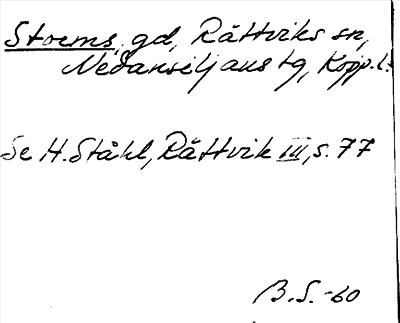 Stoems, gd, Rättviks sn,
Nedansiljans tg, Kopp. l.
Se H. Ståhl, Rättvik III, s. 77
B.S.-60